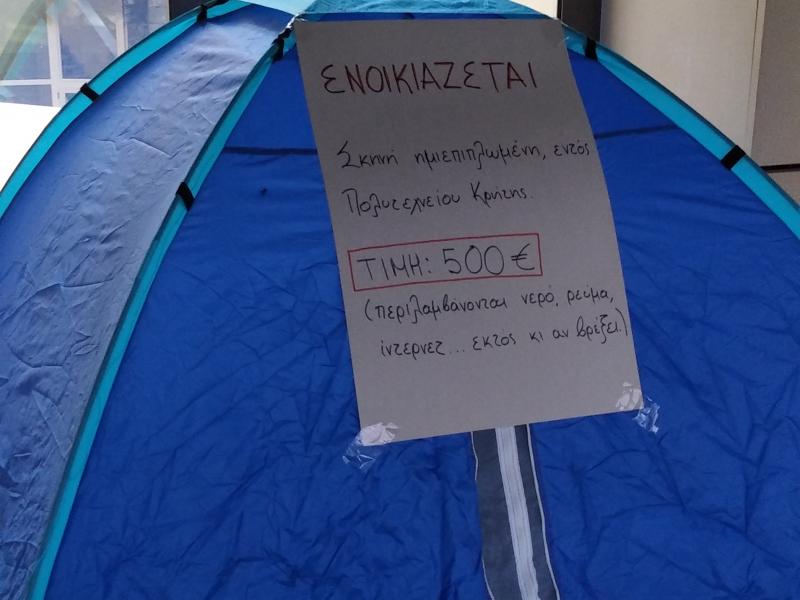 ΕΝΟΙΚΙΑΖΕΤΑΙ
Σκηνή ημιεπιπλωμένη, εντός
Πολυτεχνείου Κρήτης.
ΤΙΜΗ: 500 €
(περιλαμβάνονται νερό, ρεύμα,
ίντερνετ... εκτός κι αν βρέξει.)